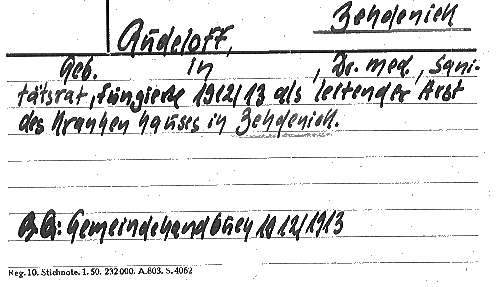 Zehdenick
Rüdeloff,
Geb. in , Dr. med., Sani-
tätsrat, fungierte 1912/13 als leitender Arzt
des Krankenhauses in Zehdenick.
B.Q: Gemeindehandbuch 1912/1913
Reg. 10. Stichnote. 1. 50. 232000. A.803. S. 4062